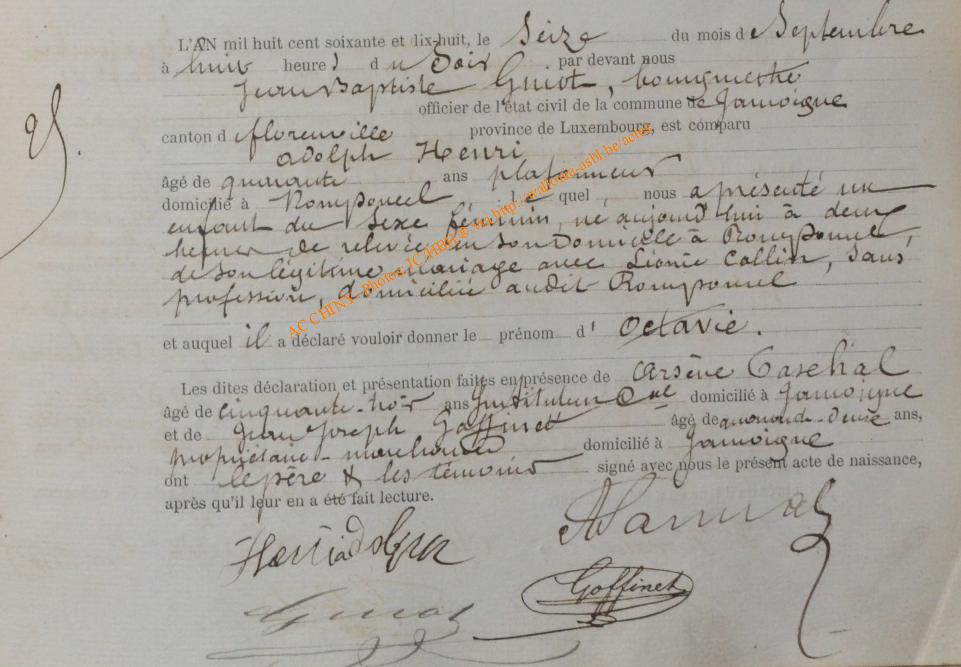 L'AN mil huit cent soixante et dix-huit, le Seize du mois de Septembre
à huit heures du Soir par devant nous
Jean Baptiste Guiot, bourgmestre
officier de l'état civil de la commune de Jamoigne
canton de florenville province de Luxembourg, est comparu
adolph Henri
âgé de quarante ans plafonneur
domicilié à Romponcel lequel nous a présenté un
enfant du sexe féminin, né aujourd'hui à deux
heures de relevée en son Domicile à Romponcel,
de son légitime mariage avec Lionie Collin, sans
profession, domiciliée audit Romponcel
et auquel il a déclaré vouloir donner le prénom d'Octavie.
Les dites déclaration et présentation faites en présence de Arsène
âgé de cinquante-trois ans Instituteur Cal domicilié à Jamoigne
et de Jean Joseph Goffinet âgé de quarante-deux ans,
propriétaire-marchand domicilié à Jamoigne
ont le père & les témoins signé avec nous le présent acte de naissance,
après qu'il leur en a été fait lecture.
25.
Henri adolphe
Goffinet
Guiot
AC CHINY - Photos JC MULLER via http://wallonia-asbl.be/actug